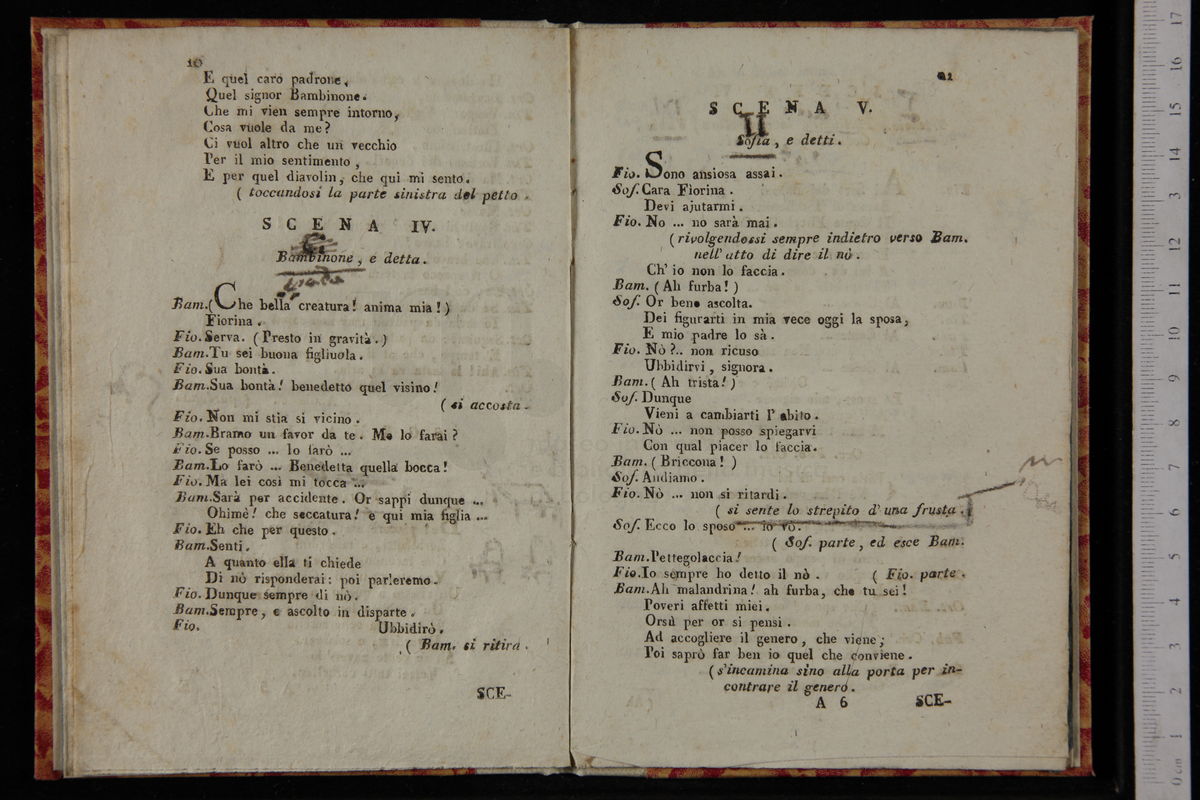 10
E quel caro padrone,
Quel signor Bambinone.
Che mi vien sempre intorno,
Cosa vuole da me?
Ci vuol altro che un vecchio
Per il mio sentimento,
E per quel diavolin, che qui mi sento.
( toccandosi la parte sinistra del petto.
SCENA IV.
Bambinone, e detta.
Bam. (Che bella creatura! anima mia!)
Fiorina.
Fio. Serva. (Presto in gravità.)
Bam. Tu sei buona figliuola.
Fio. Sua bontà.
Bam. Sua bontà! benedetto quel visino!
( si accosta.
Fio. Non mi stia sì vicino.
Bam. Bramo un favor da te. Me lo farai?
Fio. Se posso ... lo farò ...
Bam. Lo farò ... Benedetta quella bocca!
Fio. Ma lei così mi tocca ...
Bam. Sarà per accidente. Or sappi dunque ...
Ohimè! che seccatura! e qui mia figlia ...
Fio. Eh che per questo.
Bam. Senti.
A quanto ella ti chiede
Di nò risponderai: poi parleremo.
Fio. Dunque sempre di nò.
Bam. Sempre, e ascolto in disparte.
Fio. Ubbidirò.
( Bam. si ritira.
SCE-
SCENA V.
II
Sofia, e detti.
Fio. Sono ansiosa assai.
Sof. Cara Fiorina.
Devi ajutarmi.
Fio. No ... no sarà mai.
(rivolgendossi sempre indietro verso Bam.
nell' atto di dire il nò.
Ch' io non lo faccia.
Bam. (Ah furba!)
Sof. Or bene ascolta.
Dei figurarti in mia vece oggi la sposa,
E mio padre lo sà.
Fio. Nò?.. non ricuso
Ubbidirvi, signora.
Bam. (Ah trista!)
Sof. Dunque
Vieni a cambiarti l' abito.
Fio. Nò ... non posso spiegarvi
Con qual piacer lo faccia.
Bam. (Briccona!)
Sof. Andiamo.
Fio. Nò ... non si ritardi.
( si sente lo strepito d' una frusta.
Sof. Ecco lo sposo ... io vò.
( Sof. parte, ed esce Bam.
Bam. Pettegolaccia!
Fio. Io sempre ho detto il nò. ( Fio. parte.
Bam. Ah malandrina! ah furba, che tu sei!
Poveri affetti miei.
Orsù per or si pensi.
Ad accogliere il genero, che viene;
Poi saprò far ben io quel che conviene.
(s'incamina sino alla porta per in-
contrare il genero.
A 6 SCE-